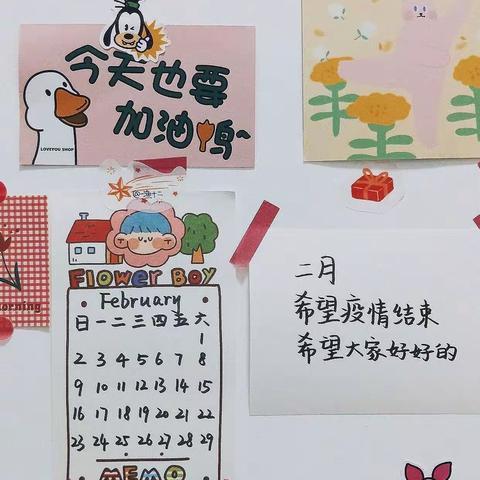 今天也要
加油鸭~
LOVEYOU SHOP
Flower Boy
February
日 一 二 三 四 五 六
1
2 3 4 5 6 7 8
9 10 11 12 13 14 15
16 17 18 19 20 21 22
23 24 25 26 27 28 29
MEMO
二月
希望疫情结束
希望大家好好的